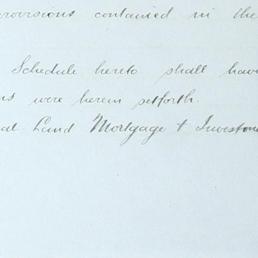 provisions contained in the
Schedule hereto shall hav
ns were herein setforth.
al Land Mortgage & Investm